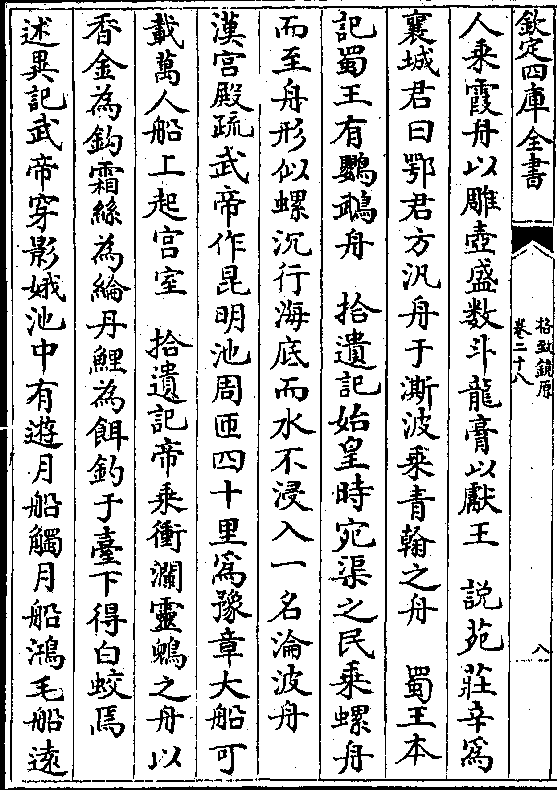 欽定四庫全書
格致鏡原
卷二十八
八
人乘霞舟以雕壺盛数斗龍膏以獻王　說苑莊辛爲
襄城君曰鄂君方汎舟于澌波乘青翰之舟　蜀王本
記蜀王有鸚鵡舟　拾遺記始皇時宛渠之民乘螺舟
而至舟形似螺沉行海底而水不浸入一名淪波舟
漢宮殿疏武帝作昆明池周匝四十里爲豫章大船可
載萬人船上起宫室　拾遺記帝乘衝瀾靈鵎之舟以
香金為鈎霜絲為綸丹鯉為餌釣于臺下得白蛟焉
述異記武帝穿影娥池中有遊月船觸月船鴻毛船遠